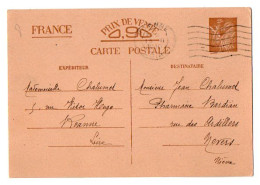 FRANCE
PRIX DE VENTE
0,90
CARTE POSTALE
EXPÉDITEUR
DESTINATAIRE
Mademoiselle Chalumel
Monsieur Jean Chalumel
5 rue Victor Hugo
Pharmacie
Roanne
rue des Ardilliers
Loire
Nevers
Nièvre